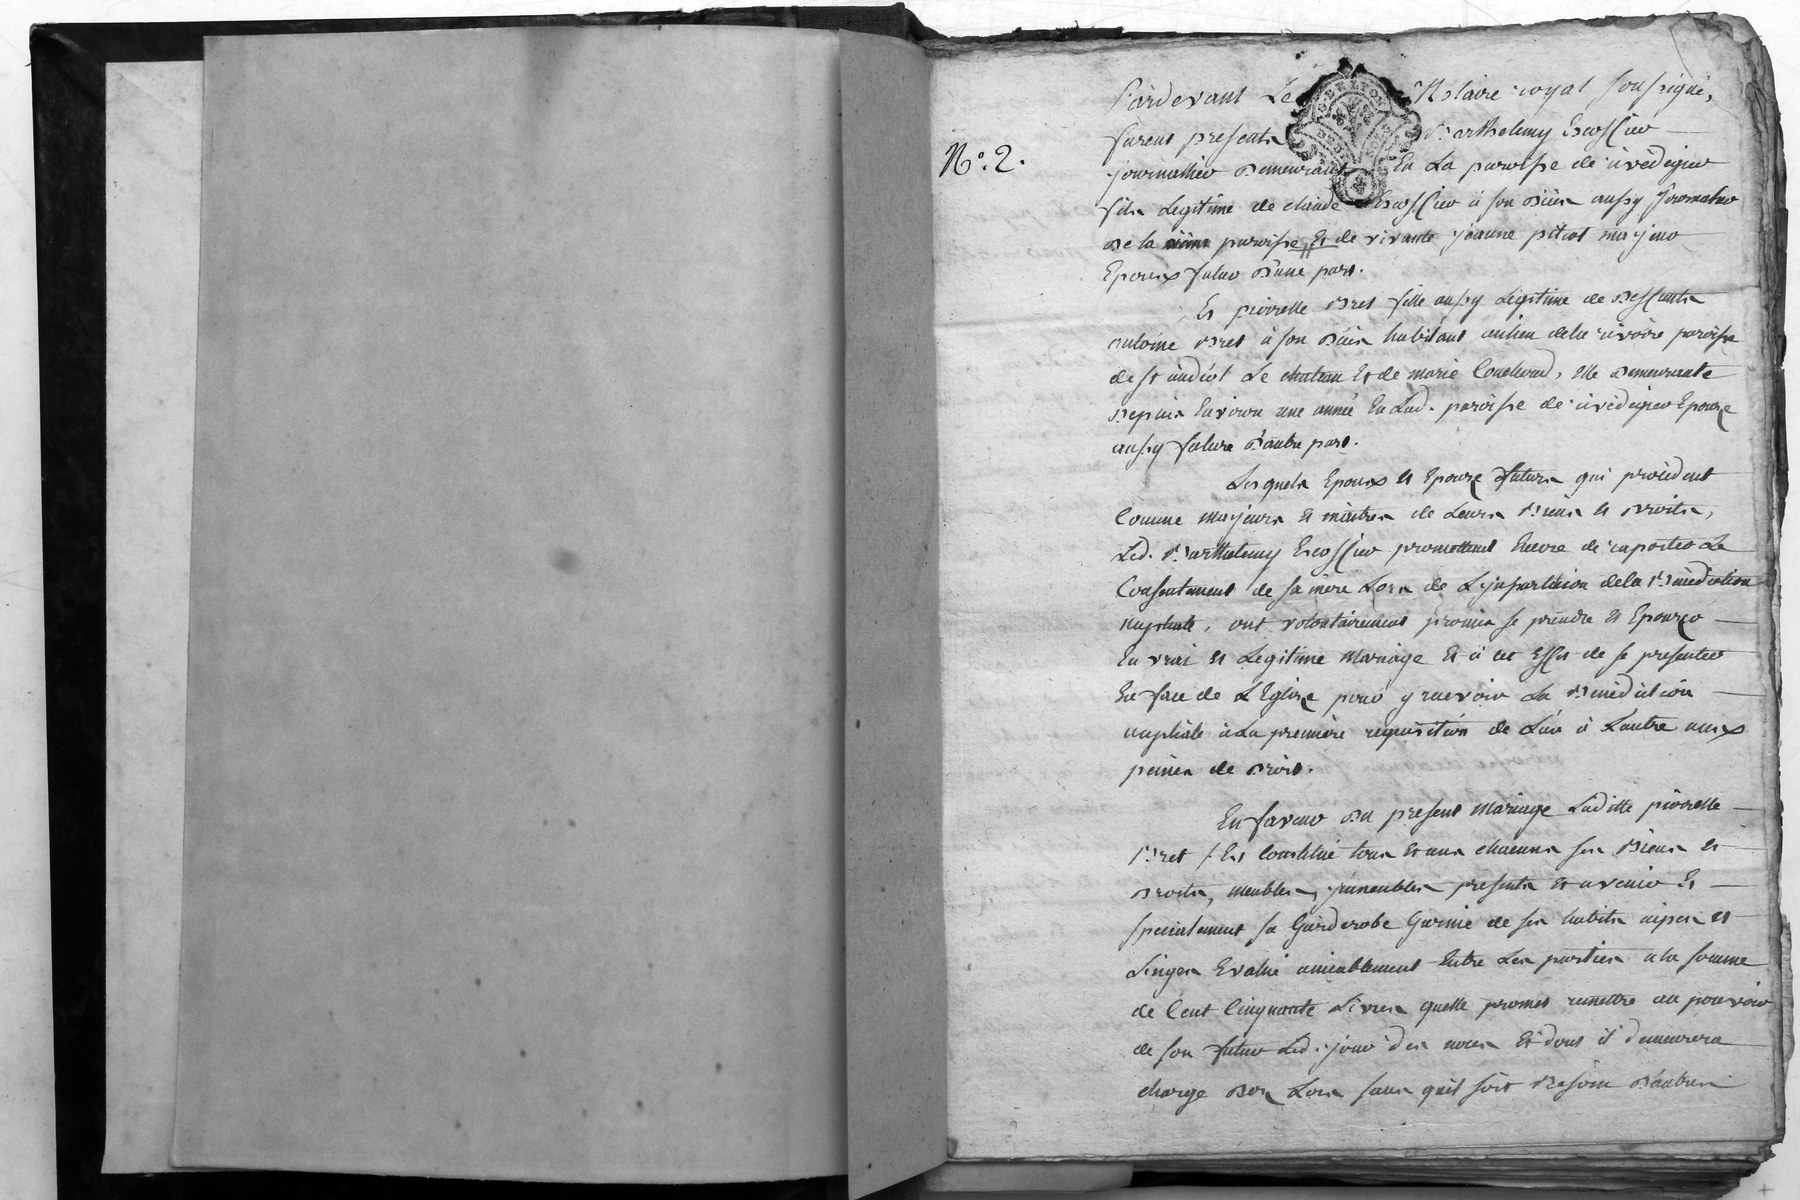 N°. 2.
Pardevant Le Notaire royal soussigné,
furent presents Barthelemy Escoffier
journallier Demeurant En La paroisse de
fils Legitime de claude Escoffier à son vivant aussy journalier
De la même paroisse, Et de vivante jeanne pitiot majeur
Epoux futur D'une part.
Et pierrette Bret fille aussy Légitime de Deffunts
antoine Bret à son vivant habitant au lieu de la rivoire paroisse
de st andéol Le chateau Et de marie Couchoud, Elle Demeurante
Depuis Environ une année En Lad. paroisse de Epouze
aussy future D'autre part.
Lesquels Epoux et Epouze futurs qui procedent
Comme majeurs et maitres de Leurs Biens et Droits,
Led. Barthelemy Escoffier promettant Encore de raporter Le
Consentement de sa mère Lors de L'jmpartition de la Bénédiction
nuptiale, ont volontairement promis se prendre et Epouzer
En vrai et Legitime Mariage Et à cet Effet de se presenter
En face de L'Eglize pour y recevoir La Bénédiction
nuptiale à La première requisition de L'un à L'autre aux
peines de Droit.
En faveur Du present Mariage Laditte pierrette
Bret s'Est Constitué tous et uns chacuns ses Biens et
Droits, meubles, jmmeubles presents et avenir Et
specialement sa Garderobe Garnie de ses habits nipes et
Linges Evalué amiablement Entre Les parties a la somme
de Cent Cinquante Livres quelle promet remettre au pouvoir
de son futur Led. jour des noces Et dont il demeurera
chargé Dez Lors sans quil soit Besoin D'autres